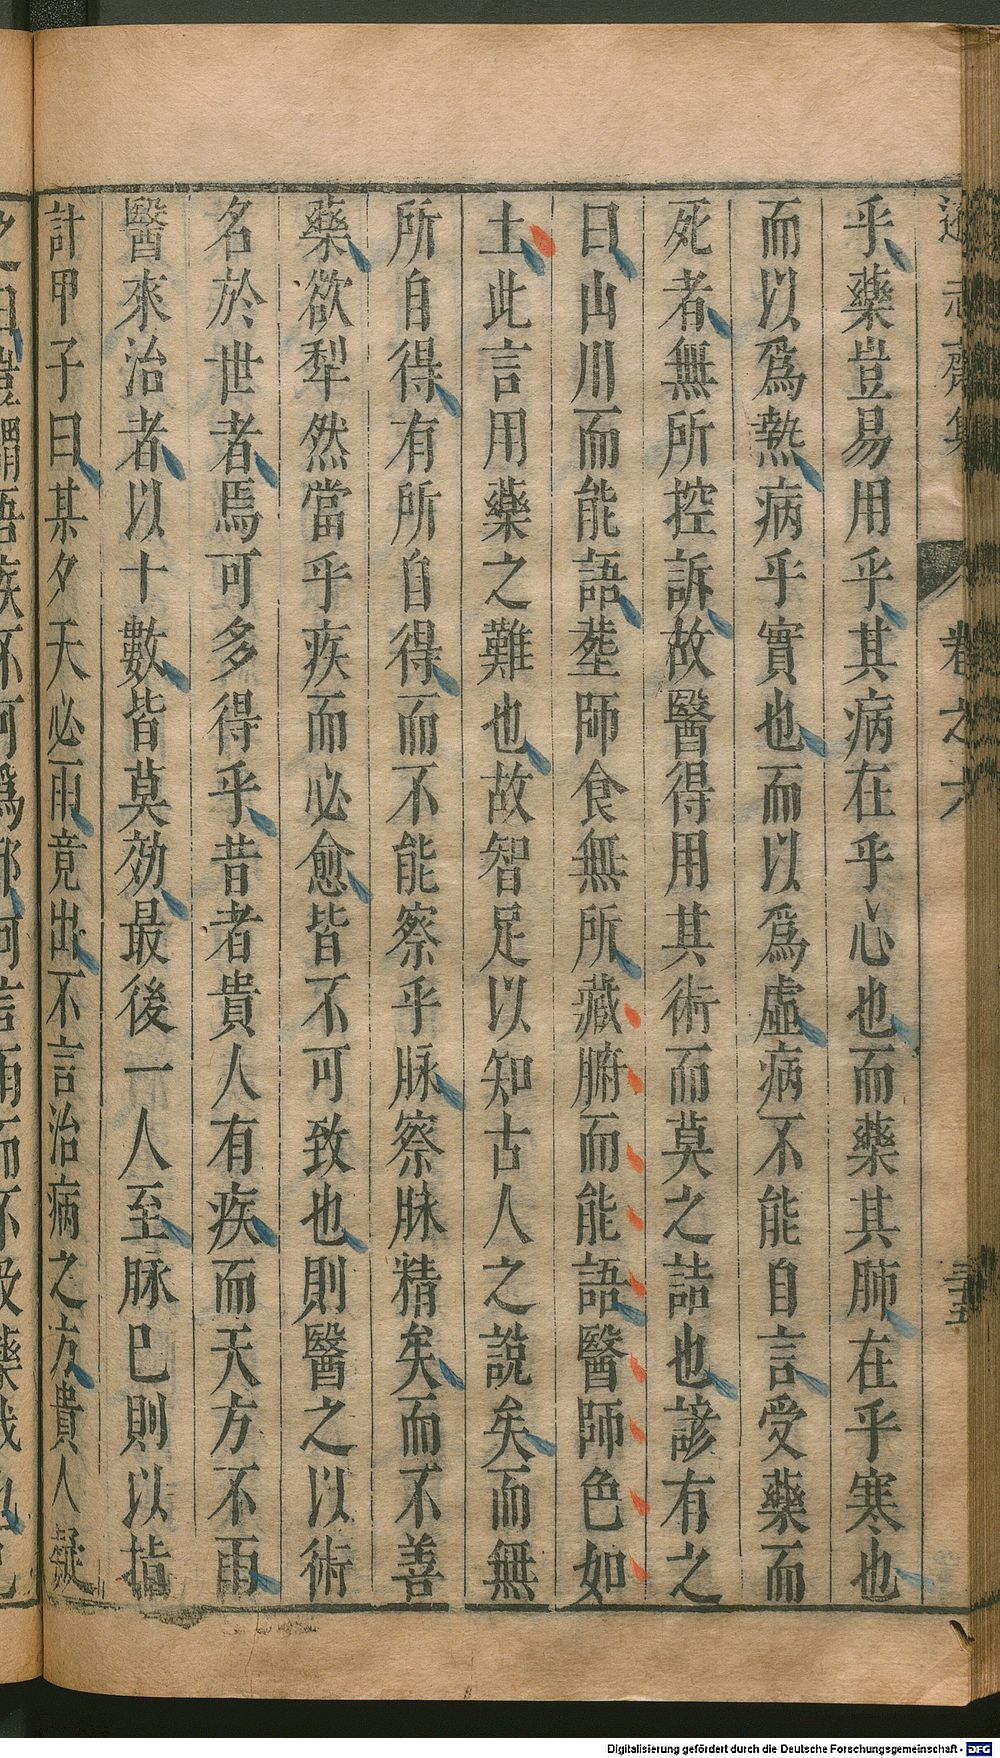 遜志齋集
卷之六
三五
乎藥豈易用乎其病在乎心也而藥其肺在乎寒也
而以爲熱病乎實也而以爲虛病不能自言受藥而
死者無所控訴故醫得用其術而莫之詰也諺有之
曰山川而能語塟師食無所藏腑而能語醫師色如
土此言用藥之難也故智足以知古人之說矣而無
所自得有所自得而不能察乎脉察脉精矣而不善
藥欲犁然當乎疾而必愈皆不可致也則醫之以術
名於世者焉可多得乎昔者貴人有疾而天方不雨
醫來治者以十數皆莫効最後一人至脉巳則以指
計甲子曰某夕天必雨竟出不言治病之方貴人疑
之曰豈謂吾疾不可爲耶何言雨而不及藥我也巳
Digitalisierung gefördert durch die Deutsche Forschungsgemeinschaft - DFG